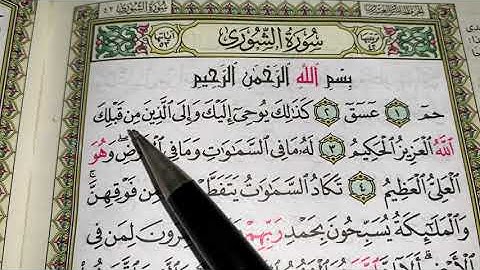 سُورَةُ الشُّورَى
بِسْمِ اللَّهِ الرَّحْمَٰنِ الرَّحِيمِ
حمٓ ١ عٓسٓقٓ ٢ كَذَٰلِكَ يُوحِىٓ إِلَيْكَ وَإِلَى الَّذِينَ مِن قَبْلِكَ
اللَّهُ الْعَزِيزُ الْحَكِيمُ ٣ لَهُۥ مَا فِى السَّمَٰوَٰتِ وَمَا فِى الْأَرْضِ وَهُوَ
الْعَلِىُّ الْعَظِيمُ ٤ تَكَادُ السَّمَٰوَٰتُ مِن فَوْقِهِنَّ
وَالْمَلَٰٓئِكَةُ يُسَبِّحُونَ بِحَمْدِ رَبِّهِمْ لِمَن فِى